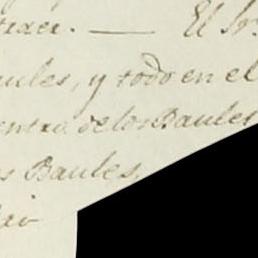 traer. — El Sr.
aules, y todo en el
entro. de los Baules
s Baules.